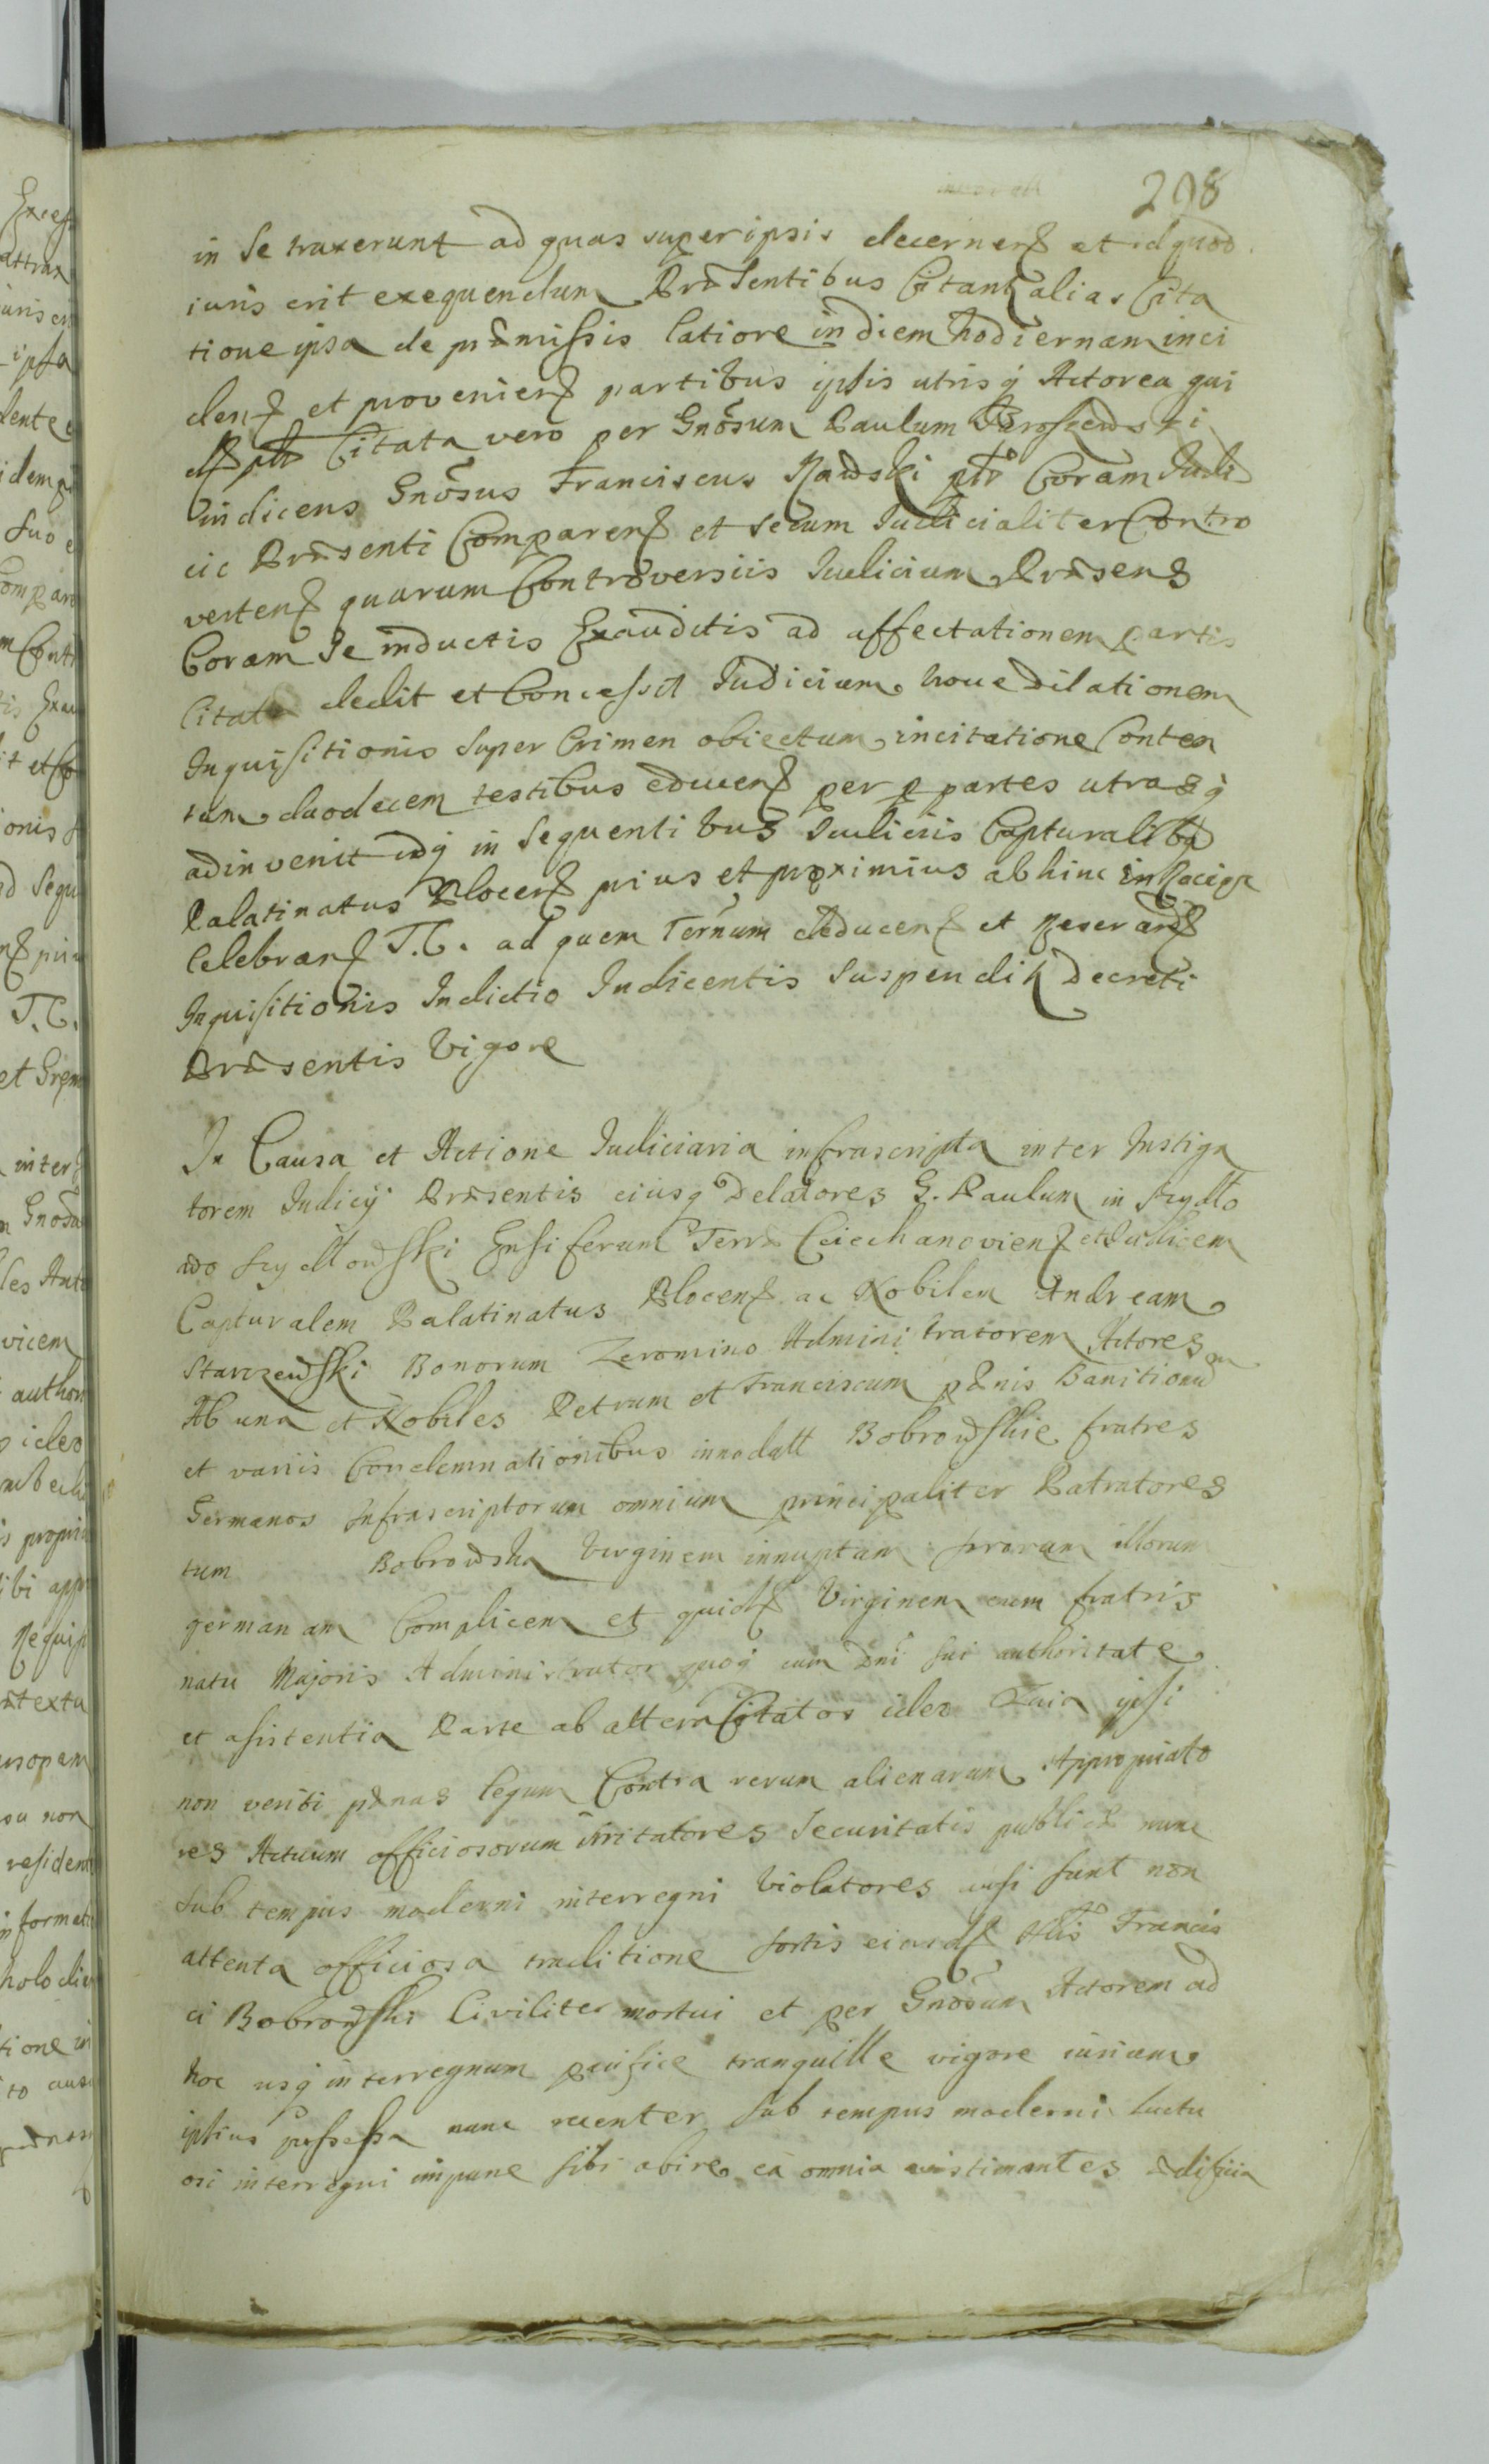 208
in se traxerunt ad quas super ipsis decernen et id quod
iuris erit exequendum Præsentibus Citant alias Cita
tione ipsa de præmissis latiore in diem hodiernam inci
den et provenien partibus ipsis utrisq Actorea qui
Citata vero per Gnosum Paulum
indicens Gnosus Franciscus Rawski ptr Coram Judi
cie Præsenti Comparen et secum Judicialiter Contro
verten quarum Controversiis Judicium Præsens
Coram se inductis Exauditis ad affectationem partis
Citatæ dedit et Concessit Judicium nove dilationem
Inquisitionis super Crimen obiectum in citatione Conten
tum duodecem testibus educen per partes utrasq
adinvenit idq in sequentibus Judiciis Capturalib
Palatinatus Plocen prius et proximius ab hinc in Raciąż
Celebran T.C. ad quem Ternum deducen et Reseran
Inquisitionis Indictio Indicentis suspendit Decreti
Præsentis Vigore
In Causa et Actione Judiciaria infrascripta inter Instiga
torem Judicij Præsentis eiusq Delatores G. Paulum in Szydło
wo Szydłowski Ensiferum Terræ Ciechanovien et Judicem
Capturalem Palatinatus Plocen ac Nobilem Andream
Starczewski Bonorum Zeromino Administratorem Actores
Ab una et Nobiles Petrum et Franciscum pænis Banitionu
et variis Condemnationibus innodatt Bobrowskie fratres
Germanos Infrascriptorum omnium principaliter Patratores
tum Bobrowska Virginem innuptam sororam illorum
germanam Complicem et quid Virginem cum fratris
natu Majoris Administrator quoq cum Dni sui authoritate
et asistentia Parte ab altera Citatos ideo Quia ipsi
non veriti pænas legum Contra rerum alienarum Appropriato
res Actuum officiosorum irritatores Securitatis publicæ nunc
sub tempus moderni interregni Violatores ausi sunt non
attenta officiosa traditione sortis eiusd Nlis Francis
ci Bobrowski Civiliter mortui et per Gnosum Actorem ad
hoc usq interregnum pacifice tranquille vigore iurium
ipsius possessa nunc recenter sub tempus moderni luctu
osi interregni impune sibi abire ea omnia existimantes ædificia